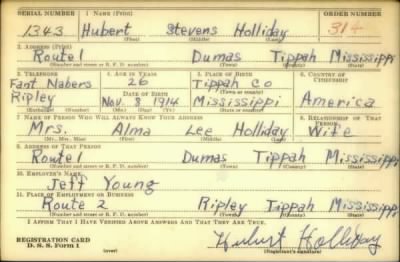 SERIAL NUMBER 1. NAME (Print) ORDER NUMBER
1343 Hubert Stevens Holliday 314
(First) (Middle) (Last)
2. ADDRESS (Print)
Route 1 Dumas Tippah Mississippi
(Number and street or R. F. D. number) (Town) (County) (State)
3. TELEPHONE 4. AGE IN YEARS 5. PLACE OF BIRTH 6. COUNTRY OF CITIZENSHIP
Fant Nabers 26 Tippah Co
DATE OF BIRTH (Town or county)
Ripley Nov. 8, 1914 Mississippi America
(Exchange) (Number) (Mo.) (Day) (Yr.) (State or country)
7. NAME OF PERSON WHO WILL ALWAYS KNOW YOUR ADDRESS 8. RELATIONSHIP OF THAT PERSON
Mrs. Alma Lee Holliday Wife
(Mr., Mrs., Miss) (First) (Middle) (Last)
9. ADDRESS OF THAT PERSON
Route 1 Dumas Tippah Mississippi
(Number and street or R. F. D. number) (Town) (County) (State)
10. EMPLOYER'S NAME
Jeff Young
11. PLACE OF EMPLOYMENT OR BUSINESS
Route 2 Ripley Tippah Mississippi
(Number and street or R. F. D. number) (Town) (County) (State)
I AFFIRM THAT I HAVE VERIFIED ABOVE ANSWERS AND THAT THEY ARE TRUE.
REGISTRATION CARD
D. S. S. Form 1 (over) Hubert Holliday
(Registrant's signature)